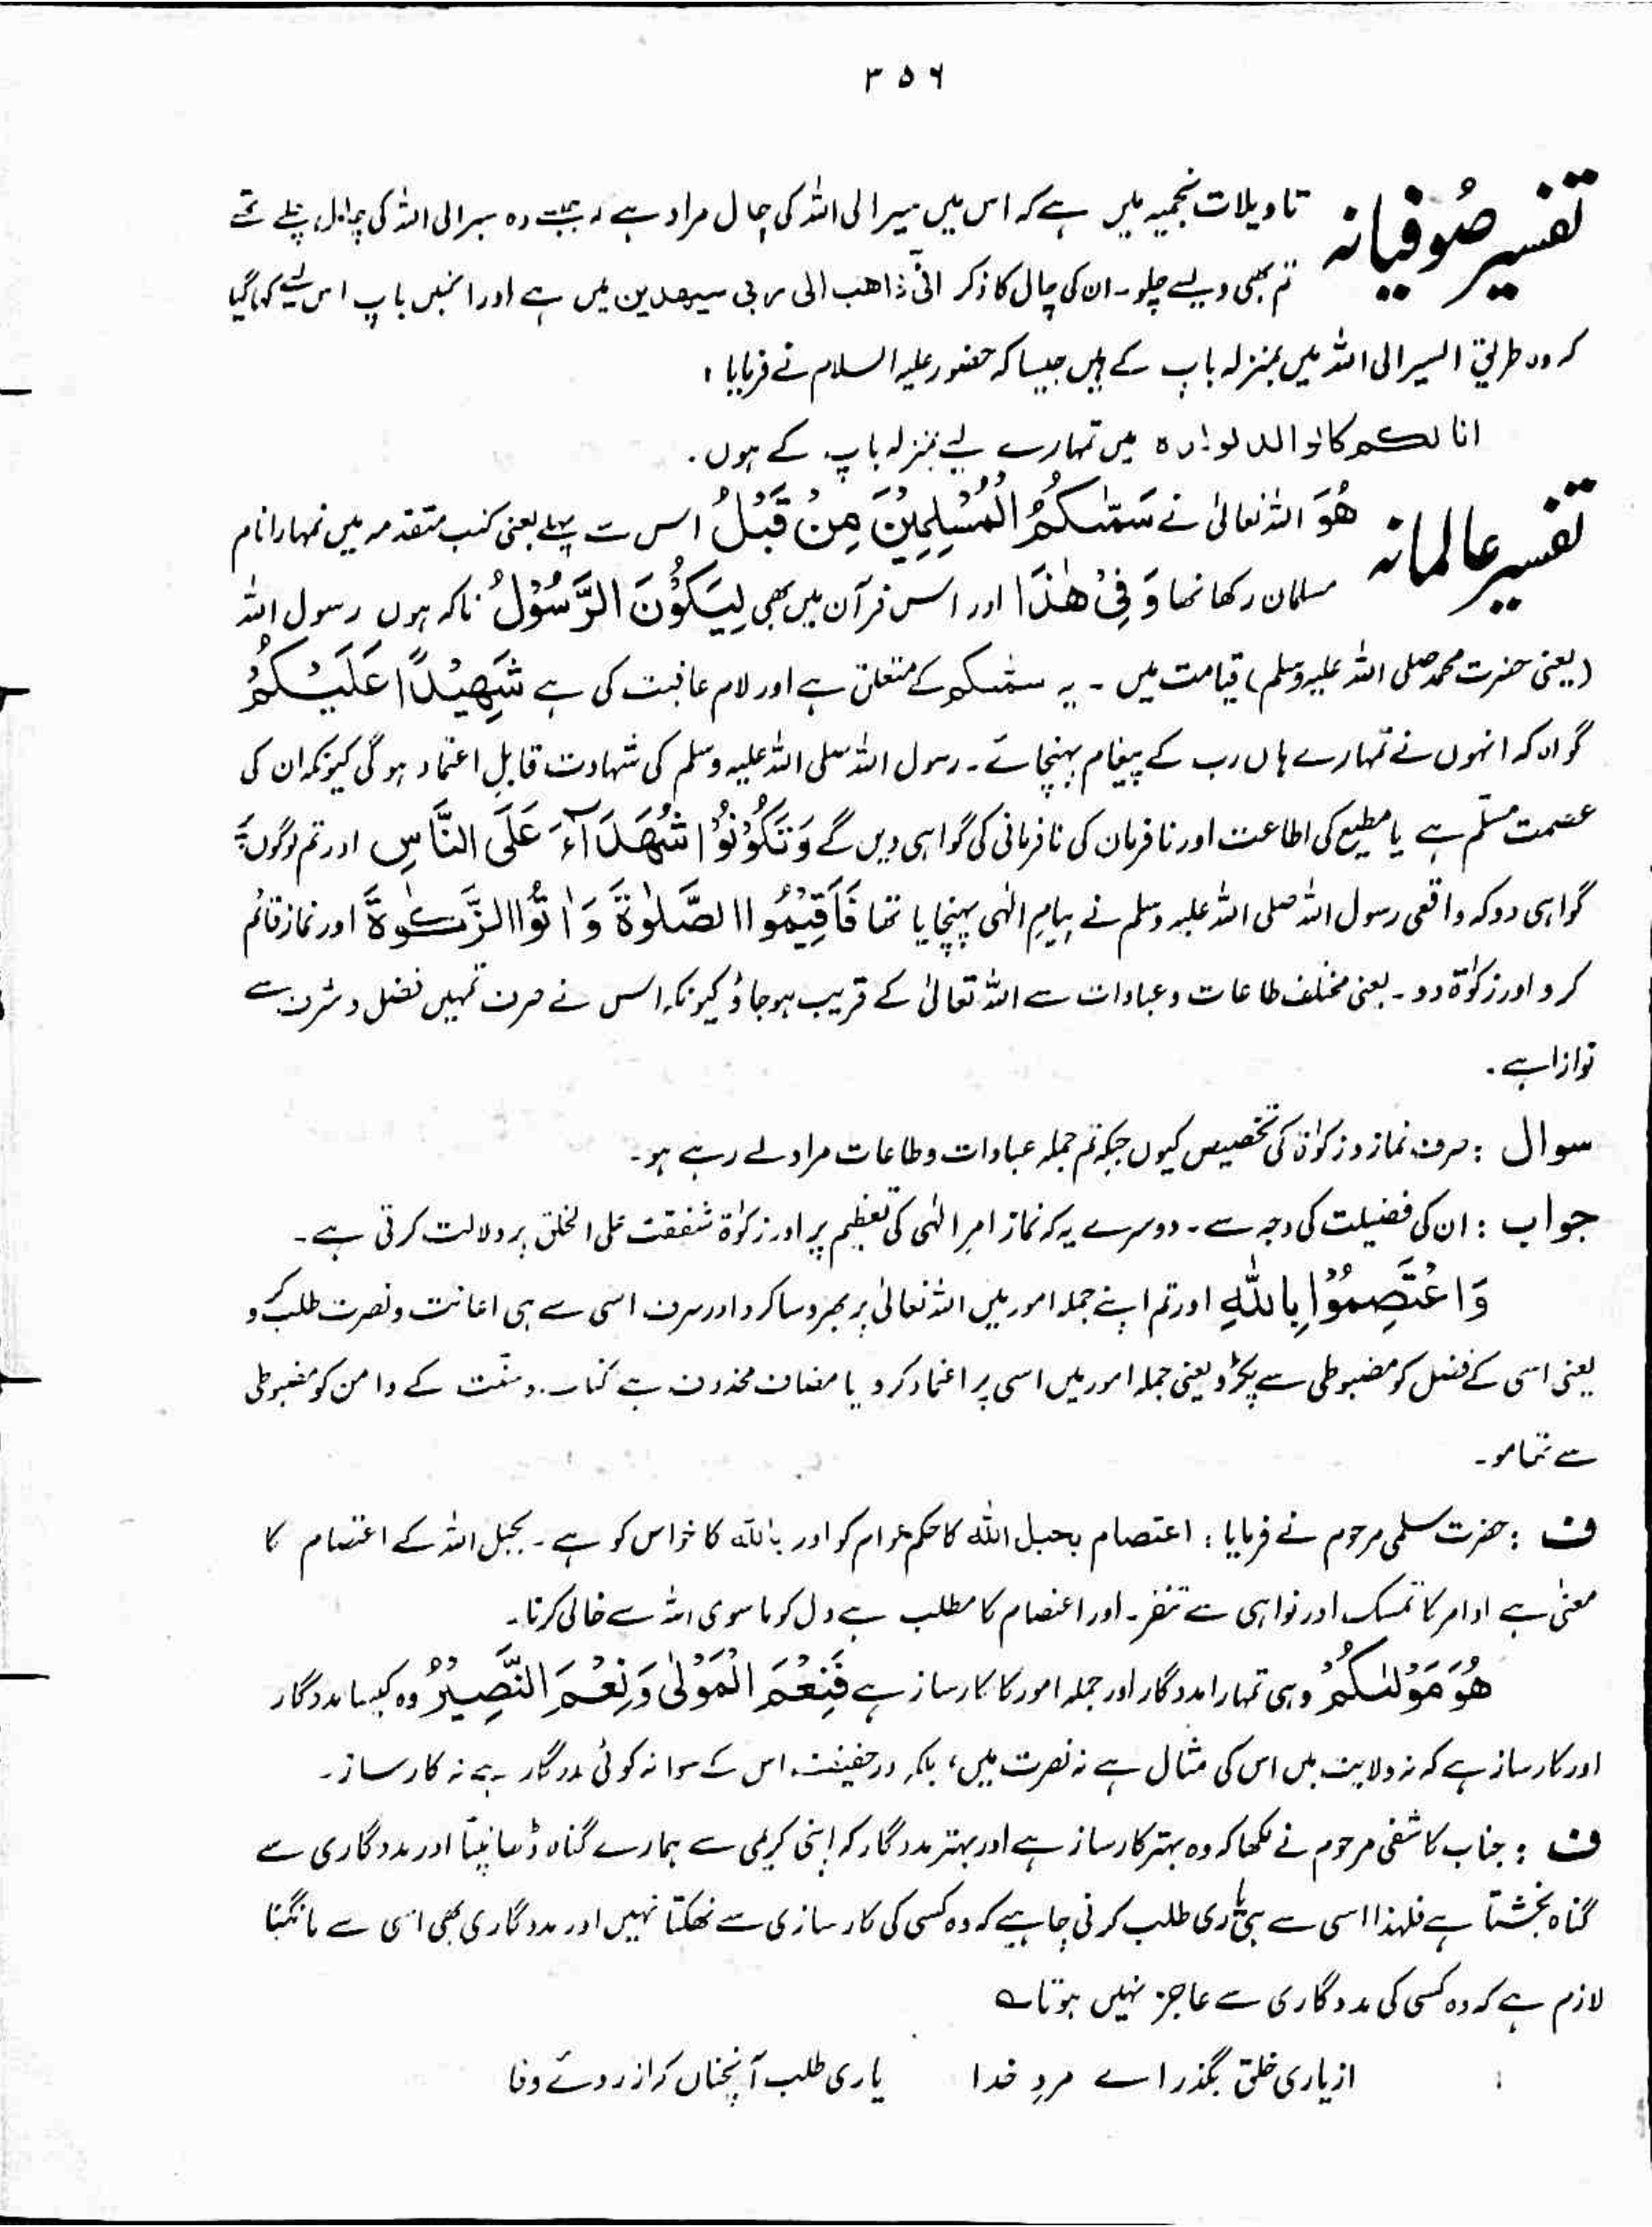 ۳۵۶
تفسیر صُوفیانہ تاویلات نجمیہ میں ہے کہ اس میں سیر الی اللہ کی چال مراد ہے جیسے وہ سیر الی اللہ کی چال چلے تھے
تم بھی ویسے چلو۔ ان کی چال کا ذکر انّی ذاھب الی ربی سیھدین میں ہے اور انہیں باپ اس لیے کہا گیا
کہ وہ طریق السیر الی اللہ میں بمنزلہ باپ کے ہیں جیسا کہ حضور علیہ السلام نے فرمایا :
انا لکم کالوالد لولدہ میں تمہارے لیے بمنزلہ باپ کے ہوں۔
تفسیر عالمانہ ھُوَ اللہ تعالیٰ نے سَمّٰىكُمُ الْمُسْلِمِيْنَ مِنْ قَبْلُ اس سے پہلے یعنی کتب متقدمہ میں تمہارا نام
مسلمان رکھا تھا وَ فِیْ ھٰذَا اور اس قرآن میں بھی لِيَكُوْنَ الرَّسُوْلُ تاکہ ہوں رسول اللہ
(یعنی حضرت محمد صلی اللہ علیہ وسلم) قیامت میں ۔ یہ سمّٰىکم کے متعلق ہے اور لام عاقبت کی ہے شَهِيْدًا عَلَيْكُمْ
گواہ کہ انہوں نے تمہارے ہاں رب کے پیغام پہنچائے۔ رسول اللہ صلی اللہ علیہ وسلم کی شہادت قابلِ اعتماد ہوگی کیونکہ ان کی
عصمت مسلّم ہے یا مطیع کی اطاعت اور نافرمان کی نافرمانی کی گواہی دیں گے وَتَكُوْنُوْا شُهَدَآءَ عَلَى النَّاسِ اور تم لوگوں پر
گواہی دو کہ واقعی رسول اللہ صلی اللہ علیہ وسلم نے پیامِ الٰہی پہنچایا تھا فَاَقِيْمُوا الصَّلٰوةَ وَ اٰتُوا الزَّكٰوةَ اور نماز قائم
کرو اور زکوٰۃ دو۔ یعنی مختلف طاعات و عبادات سے اللہ تعالیٰ کے قریب ہو جاؤ کیونکہ اس نے صرف تمہیں فضل و شرف سے
نوازا ہے۔
سوال : صرف نماز و زکوٰۃ کی تخصیص کیوں جبکہ تم جملہ عبادات و طاعات مراد لے رہے ہو۔
جواب : ان کی فضیلت کی وجہ سے۔ دوسرے یہ کہ نماز امرِ الٰہی کی تعظیم پر اور زکوٰۃ شفقت علی الخلق پر دلالت کرتی ہے۔
وَاعْتَصِمُوْا بِاللّٰهِ اور تم اپنے جملہ امور میں اللہ تعالیٰ پر بھروسا کرو اور صرف اسی سے ہی اعانت و نصرت طلب کرو
یعنی اسی کے فضل کو مضبوطی سے پکڑو یعنی جملہ امور میں اسی پر اعتماد کرو یا مضاف محذوف ہے کتاب و سنّت کے دامن کو مضبوطی
سے تھامو۔
ف : حضرت سلمی مرحوم نے فرمایا : اعتصام بحبل اللہ کا حکم عوام کو اور باللہ کا خواص کو ہے۔ بحبل اللہ کے اعتصام کا
معنیٰ ہے اوامر کا تمسک اور نواہی سے تنفر۔ اور اعتصام کا مطلب ہے دل کو ماسوی اللہ سے خالی کرنا۔
هُوَ مَوْلٰىكُمْ وہی تمہارا مددگار اور جملہ امور کا کارساز ہے فَنِعْمَ الْمَوْلٰى وَنِعْمَ النَّصِيْرُ وہ کیسا مددگار
اور کارساز ہے کہ نہ ولایت میں اس کی مثال ہے نہ نصرت میں، بلکہ درحقیقت اس کے سوا نہ کوئی مددگار ہے نہ کارساز۔
ف : جناب کاشفی مرحوم نے لکھا کہ وہ بہتر کارساز ہے اور بہتر مددگار کہ اپنی کریمی سے ہمارے گناہ ڈھانپتا اور مددگاری سے
گناہ بخشتا ہے فلہٰذا اسی سے ہی یاری طلب کرنی چاہیے کہ وہ کسی کی کارسازی سے تھکتا نہیں اور مددگاری بھی اسی سے مانگنا
لازم ہے کہ وہ کسی کی مددگاری سے عاجز نہیں ہوتا ؎
از یاری خلق بگذر اے مردِ خدا یاری طلب آنچناں کہ از روئے وفا